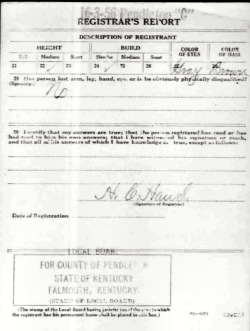 16-3-56 Pendleton "C"
REGISTRAR'S REPORT
DESCRIPTION OF REGISTRANT
HEIGHT BUILD COLOR OF EYES COLOR OF HAIR
Tall Medium Short Slender Medium Stout
21 22 23 24 25 26 27 Gray 28 Brown
29 Has person lost arm, leg, hand, eye, or is he obviously physically disqualified?
(Specify.) No
30 I certify that my answers are true; that the person registered has read or has
had read to him his own answers; that I have witnessed his signature or mark,
and that all of his answers of which I have knowledge are true, except as follows:
(Signature of Registrar)
Date of Registration
LOCAL BOARD
FOR COUNTY OF PENDLETON
STATE OF KENTUCKY
FALMOUTH, KENTUCKY.
(STAMP OF LOCAL BOARD)
(The stamp of the Local Board having jurisdiction of the area in which
the registrant has his permanent home shall be placed in this box.)